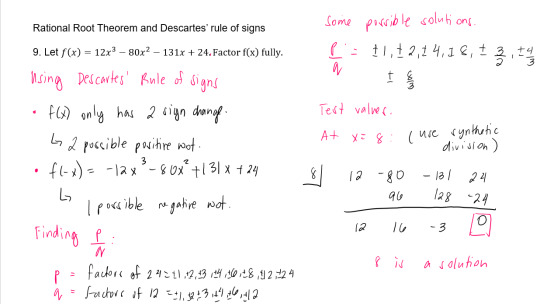 Rational Root Theorem and Descartes' rule of signs
9. Let f(x) = 12x³ − 80x² − 131x + 24. Factor f(x) fully.
Using Descartes' Rule of signs
• f(x) only has 2 sign change.
↳ 2 possible positive root.
• f(-x) = -12x³ - 80x² + 131x + 24
↳ 1 possible negative root.
Finding p/q :
p = factors of 24 = ±1, ±2, ±3, ±4, ±6, ±8, ±12, ±24
q = factors of 12 = ±1, ±2, ±3, ±4, ±6, ±12
Some possible solutions.
p/q = ±1, ±2, ±4, ±8, ± 3/2, ± 4/3
± 8/3
Test values.
At x = 8 : (use synthetic
division)
8 12 -80 -131 24
96 128 -24
12 16 -3 0
8 is a solution